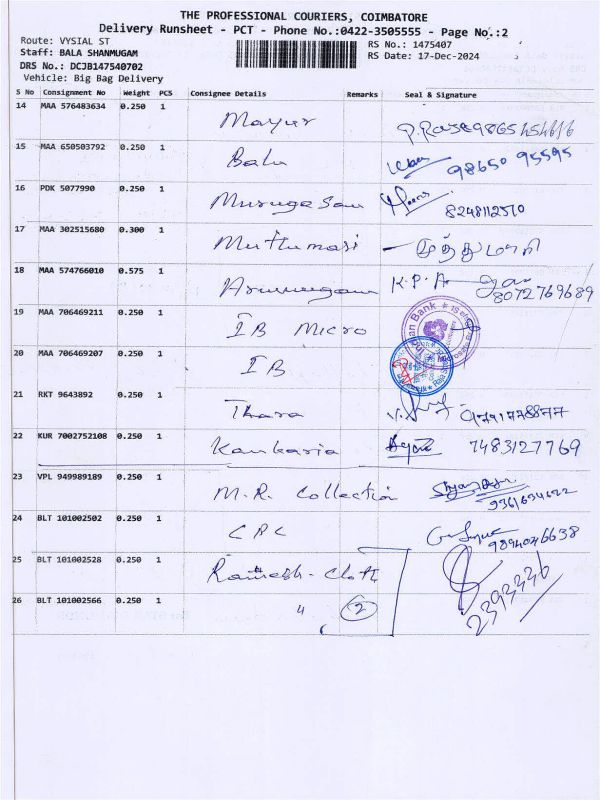 THE PROFESSIONAL COURIERS, COIMBATORE
Delivery Runsheet - PCT - Phone No.:0422-3505555 - Page No.:2
Route: VYSIAL ST
RS No.: 1475407
Staff: BALA SHANMUGAM
RS Date: 17-Dec-2024
DRS No.: DCJB147540702
Vehicle: Big Bag Delivery
S No Consignment No Weight PCS Consignee Details Remarks Seal & Signature
14 MAA 576483634 0.250 1 Mayur
15 MAA 650503792 0.250 1 Balu 98650 95595
16 PDK 5077990 0.250 1 Murugasan 8248112510
17 MAA 302515680 0.300 1 Muthumari - முத்துமாரி
18 MAA 574766010 0.575 1 Arumugam K.P.A 8072769689
19 MAA 706469211 0.250 1 IB Micro
20 MAA 706469207 0.250 1 IB
21 RKT 9643892 0.250 1 Thara
22 KUR 7002752108 0.250 1 Kankaria 7483127769
23 VPL 949989189 0.250 1 M.R. Collection
24 BLT 101002502 0.250 1 CBC
25 BLT 101002528 0.250 1 Ramesh - Cloth
26 BLT 101002566 0.250 1 " 2 2393336